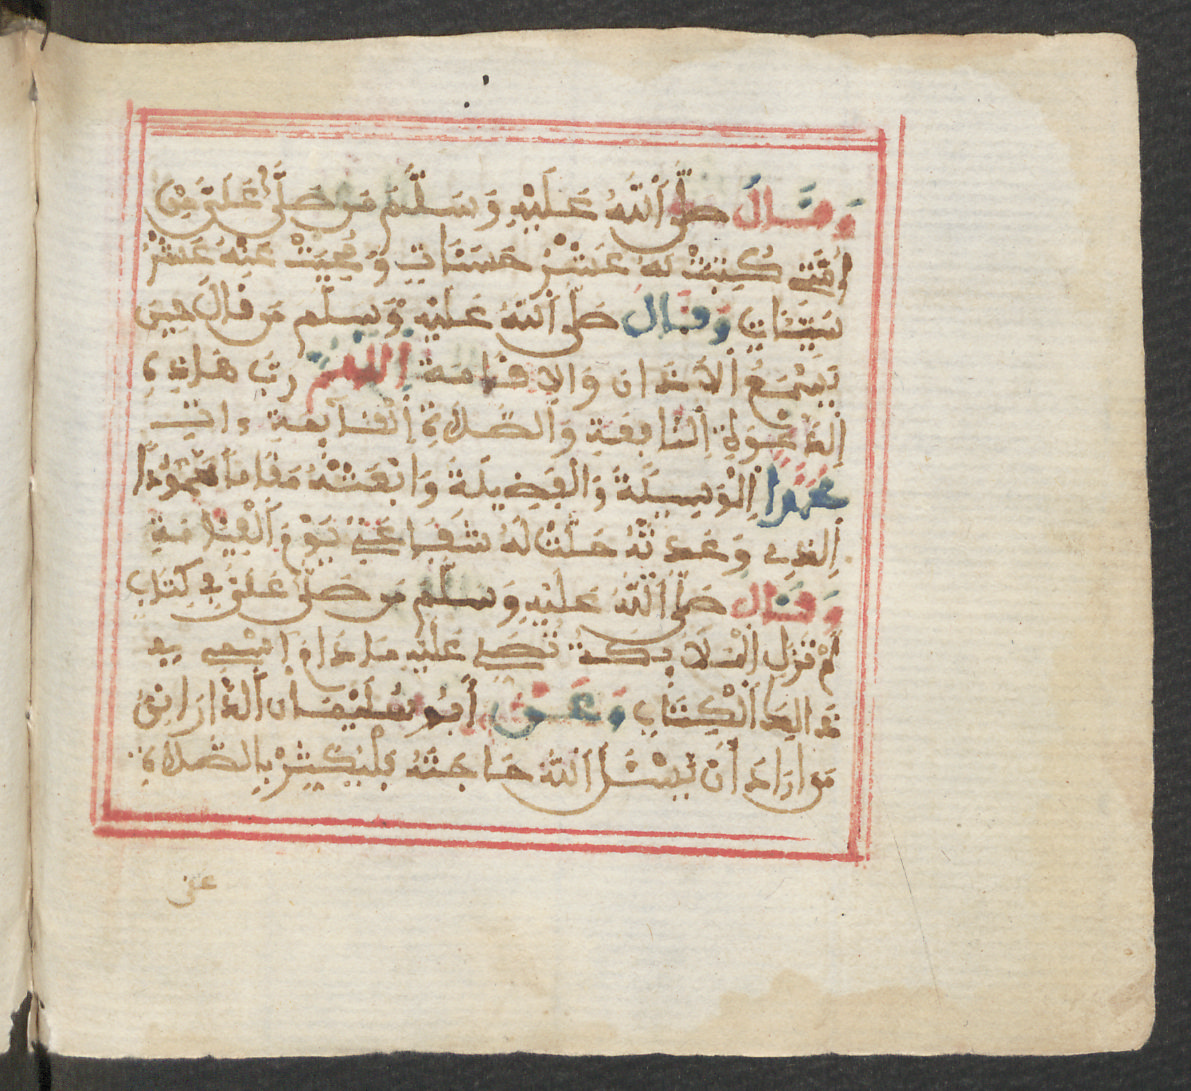 وَقَالَ صَلَّى اَللَّهُ عَلَيْهِ وَسَلَّمَ مَن صَلَّى عَلَيَّ مِنُ
اُمَّتِي كُتِبَتْ لَهُ عَشْرُ حَسَنَاتٍ وَمُحِيَتْ عَنْهُ عَشْرُ
سَيِّئَاتٍ وَقَالَ صَلَّى اَللَّهُ عَلَيْهِ وَسَلَّم مَن قَالَ حِينَ
يَسْمَعُ اَلْأَذَانَ وَالإِقَامَةَ اِللَّهُمَّ رَبَّ هَذِهِ
اِلدَّعْوَةِ اِلنَّافِعَةِ وَالصَّلَاةِ اِلْقَائِمَةِ ءاتِ
مُحَمَّدًا اِلْوَسِيلَةَ وَالْفَضِيلَةَ وَابْعَثْهُ مَقَامًا مَّحْمُودًا
اِلَّذِي وَعَدتَّهُ حَلَّتْ لَهُ شَفَاعَتِي يَوْمَ اَلْقِيَامَةِ
وَقَالَ صَلَّى اَللَّهُ عَلَيْهِ وَسَلَّم مَن صَلَّى عَلَيَّ فِي كِتَابٍ
لَمْ تَزَلِ اِلْمَلَائِكَةُ تُصَلِّي عَلَيْهِ مَا دَامَ اِسْمِي فِي
ذَالِكَ اَلْكِتَابِ وَعَنْ أَبِي سُلَيْمَانَ اَلدَّارَانِيِّ
مَنَ ارَادَ أَنْ يَسْئَلَ اَللَّهَ حَاجَتَهُ فَلْيُكْثِرْ بِالصَّلَاةِ
على